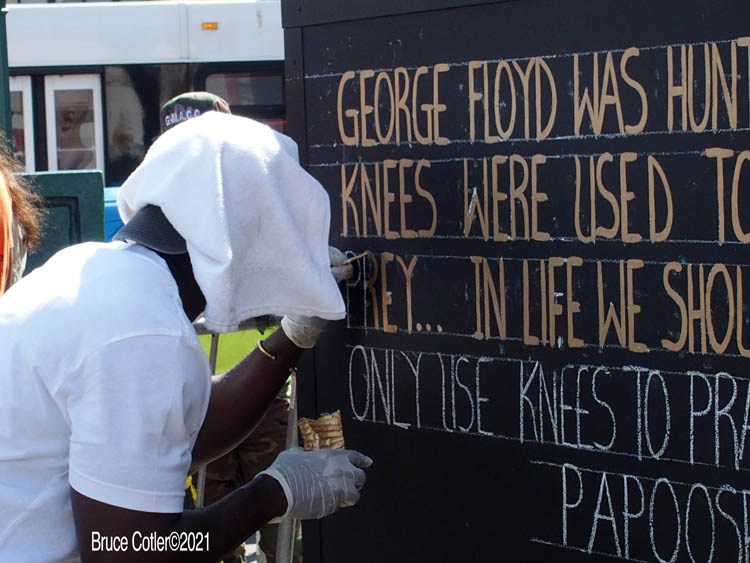 GEORGE FLOYD WAS HUNT
KNEES WERE USED TO
PREY... IN LIFE WE SHOU
ONLY USE KNEES TO PRA
PAPOOS
Bruce Cotler©2021